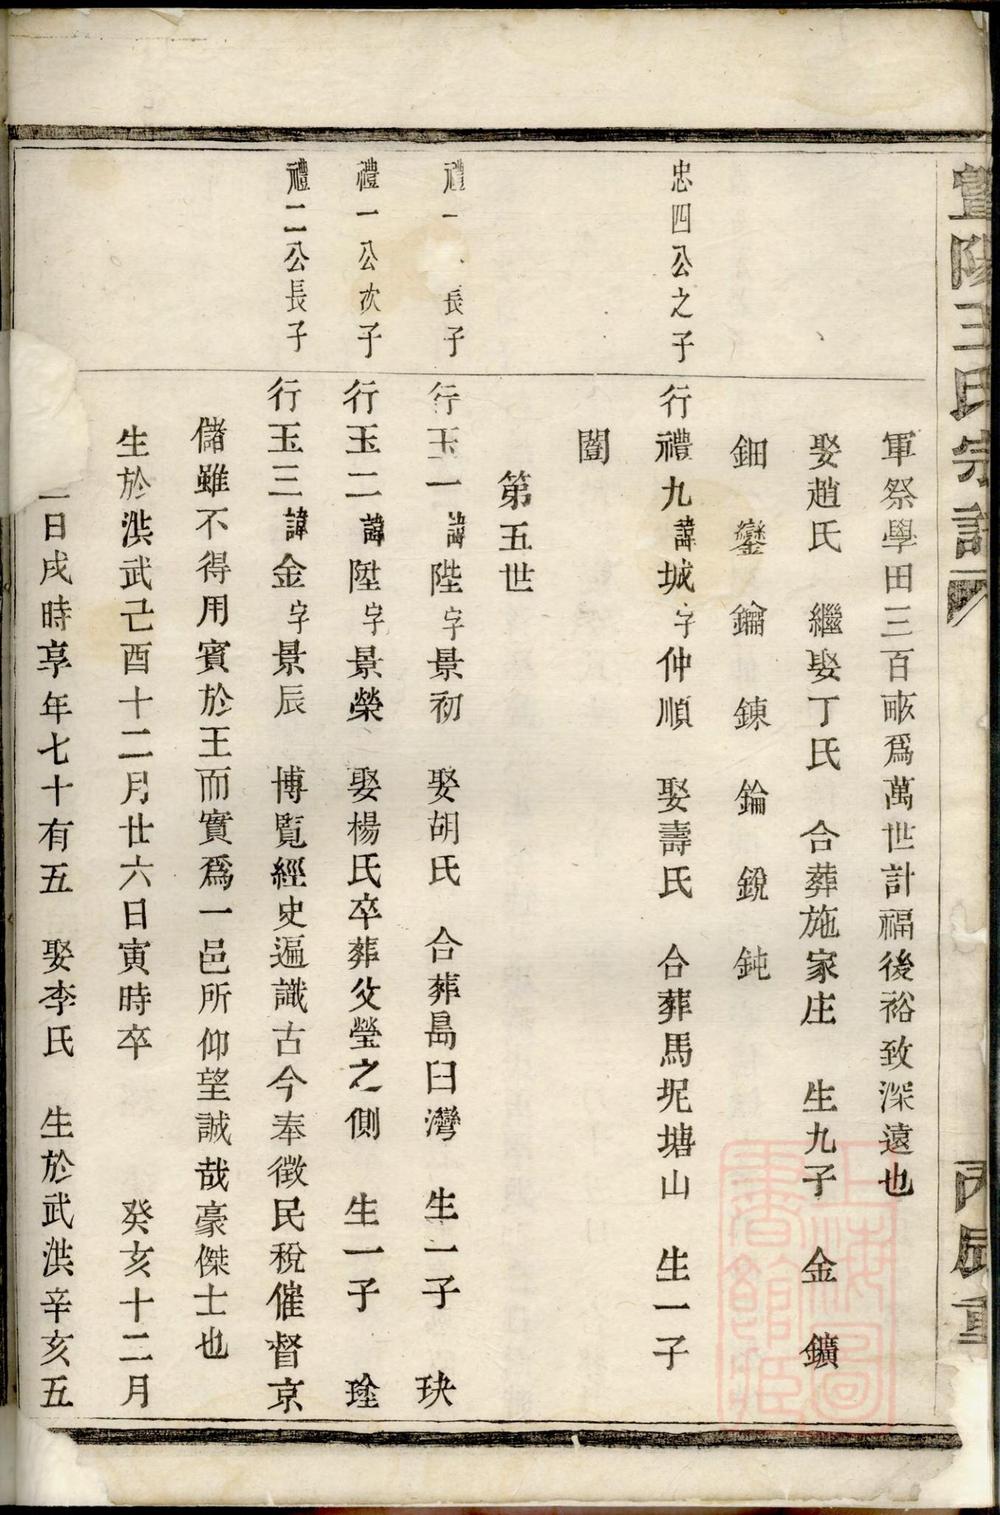 暨陽王氏宗譜
丙辰重
軍祭學田三百畞爲萬世計福後裕致深遠也
娶趙氏 繼娶丁氏 合葬施家庄 生九子 金 鑛
鈿 鑾 鑰 鍊 錀 銳 鈍
忠四公之子
行禮九諱城字仲順 娶壽氏 合葬馬坭塘山 生一子
闓
第五世
禮一 長子
行玉一諱陛字景初 娶胡氏 合葬昌臼灣 生一子 玦
禮一公次子
行玉二諱陞字景榮 娶楊氏卒葬父瑩之側 生一子 琻
禮二公長子
行玉三諱金字景辰 博覧經史遍識古今奉徵民稅催督京
儲雖不得用賓於王而實爲一邑所仰望誠哉豪傑士也
生於洪武己酉十二月廿六日寅時卒 癸亥十二月
一日戌時享年七十有五 娶李氏 生於武洪辛亥五
上海圖書館藏